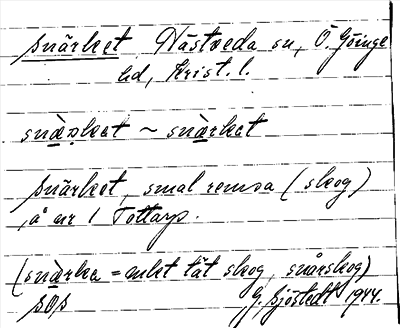 Snärket Nästveda sn, Ö. Göinge
hd, Krist. l.
snäṛket ~ snärket
Snärket, smal remsa (skog)
å nr 1 Tottarp.
(snärka = mkt tät skog, snårskog)
SOS G. Sjöstedt 1944.